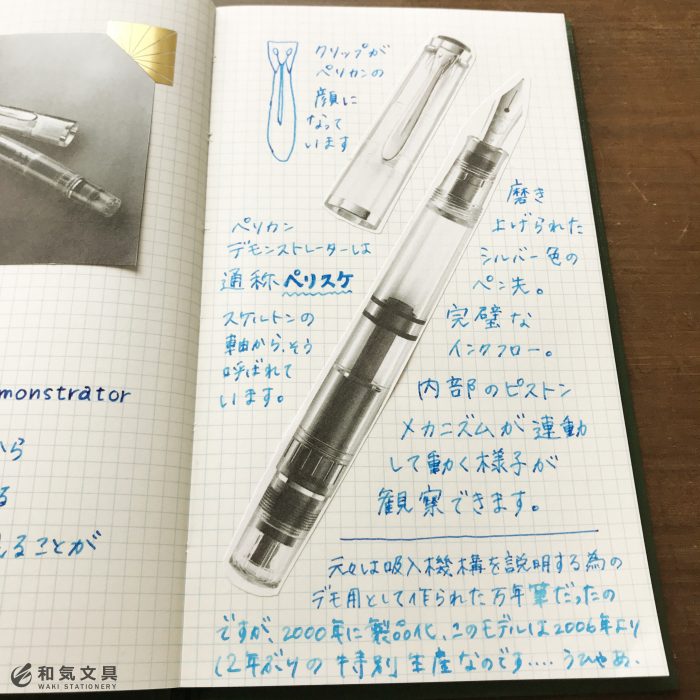 クリップが
ペリカンの
顔に
なって
います
ペリカン
デモンストレーターは
通称ペリスケ
スケルトンの
軸から、そう
呼ばれて
います。
磨き
上げられた
シルバー色の
ペン先。
完璧な
インクフロー。
内部のピストン
メカニズムが連動
して動く様子が
観察できます。
元々は吸入機構を説明する為の
デモ用として作られた万年筆だったの
ですが、2000年に製品化、このモデルは2006年より
12年ぶりの特別生産なのです....うひゃぁ、
monstrator
から
る
えることが
和気文具
WAKI STATIONERY